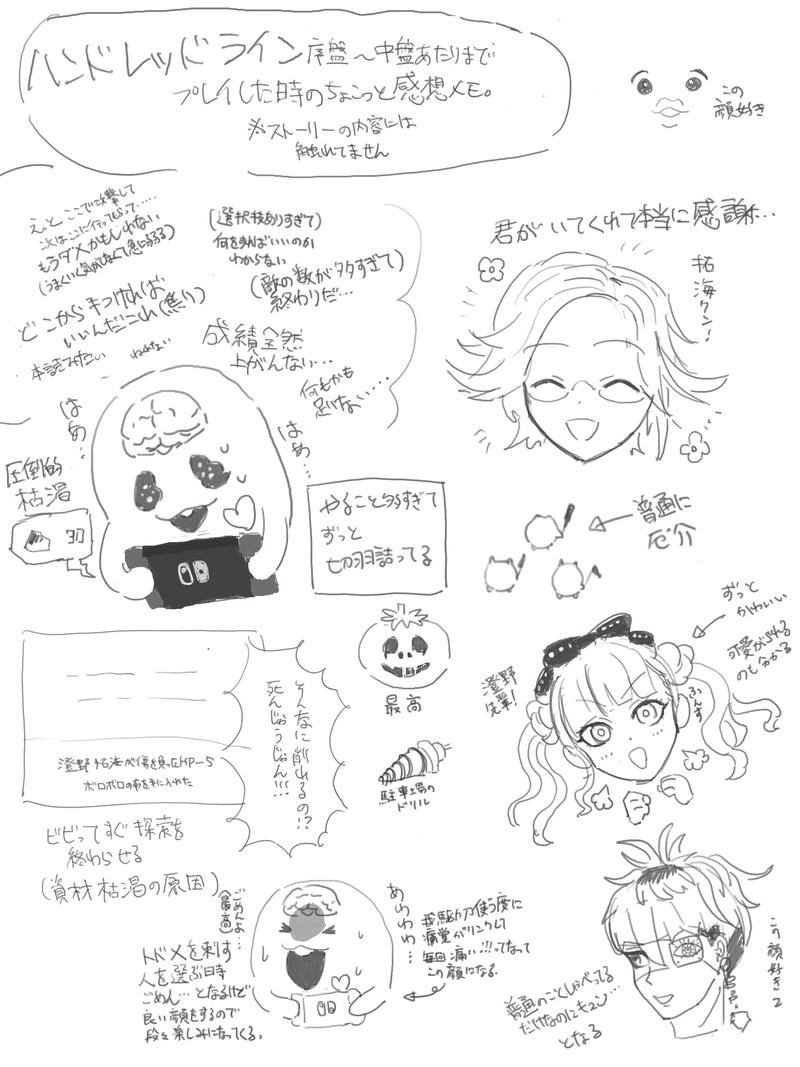 ハンドレッドライン序盤～中盤あたりまで
プレイした時のちょこっと感想メモ。
※ストーリーの内容には
触れてません
この
顔好き
えっとここで攻撃して
次はここに行ってもらって……
もうダメかもしれない
(うまくいく気がしなくて急に弱る)
(選択技ありすぎて)
何を選べばいいのか
わからない
(敵の数が多すぎて)
終わりだ…
どこから手つければ
いいんだこれ(焦り)
本読みたい
成績全然
上がんない…
何もかも
足りない…
はぁ…
はぁ…
圧倒的
枯渇
やること多すぎて
ずっと
切羽詰ってる
君がいてくれて本当に感謝…
拓海クン…
普通に
厄介
ずっと
かわいい
可愛がられる
のも分かる
澄野
先輩!
ふんす
最高
駐車場の
ドリル
澄野拓海が傷を負ったHP-5
ボロボロの布を手に入れた
そんなに削れるの!?
死んじゃうじゃん!!!
ビビってすぐ探索を
終わらせる
(資材枯渇の原因)
ごめんよ…
(最高)
トドメを刺す
人を選ぶ時
ごめん…となるけど
良い顔をするので
段々楽しみになってくる。
あわわわ…
我駆力使う度に
痛覚がリンクして
毎回痛い!!!ってなって
この顔になる。
この顔好き2
普通のことしゃべってる
だけなのにキュン…
となる